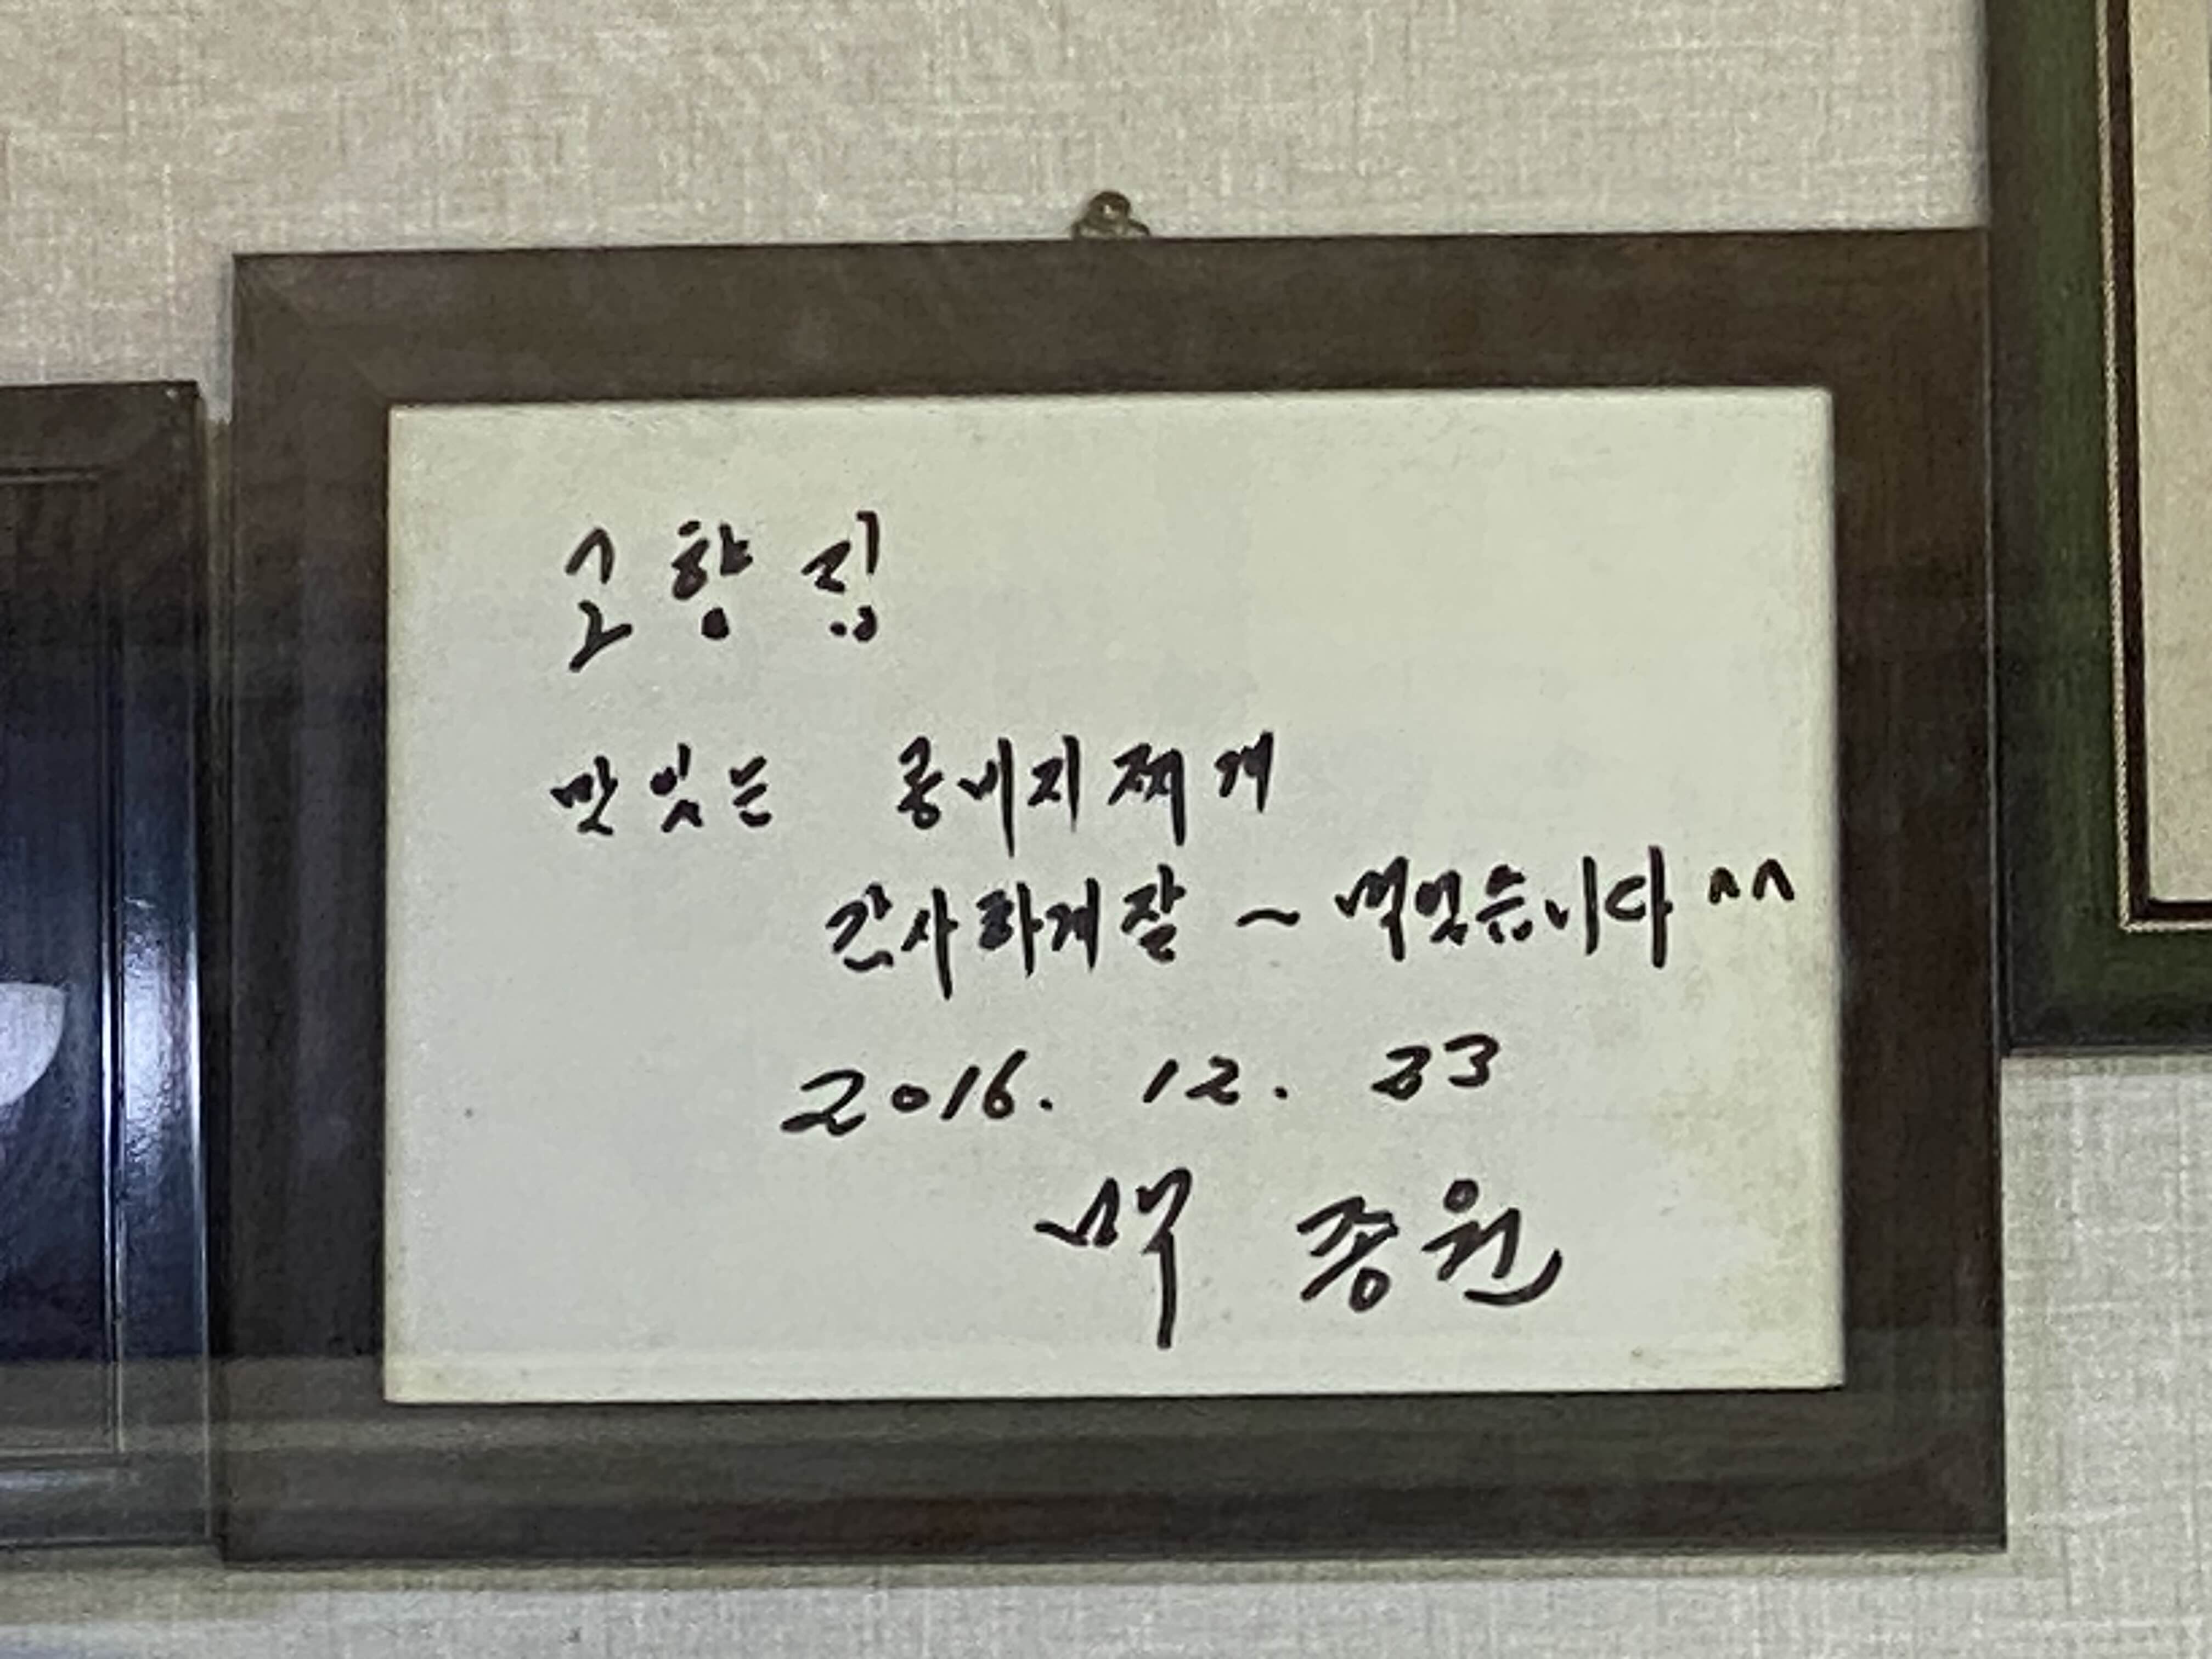 고향집
맛있는 콩비지찌개
감사하게 잘 ~ 먹었습니다 ^^
2016. 12. 23
백종원